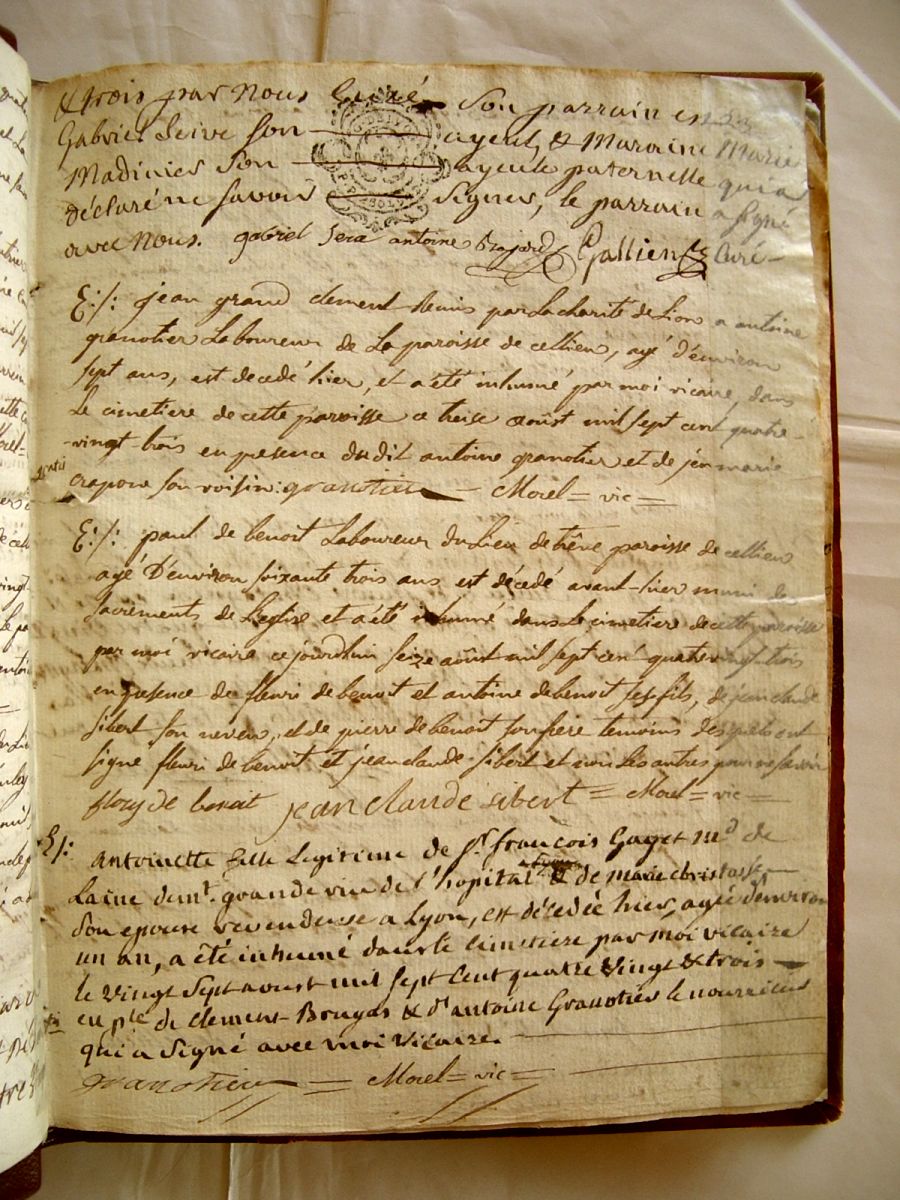 & trois par Nous Curé Son parrain est
Gabriel Seive Son ayeul, & Maraine Marie
Madinier Son ayeule paternelle qui a
déclaré ne Savoir Signer, le parrain a Signé
avec Nous. gabriel Seva antoine Gallien Curé
E:/: jean grand clement Remis par La charité de Lion a antoine
granotier Laboureur de La paroisse de cellieu, agé d'environ
sept ans, est decedé hier, et a été inhumé par moi vicaire, dans
Le cimetiere de cette paroisse ce treise août mil sept cent quatre-
-vingt-trois en presence du dit antoine granotier et de jean marie
crapone son voisin: granotier Morel = vic =
E:/: paul de benoit Laboureur du Lieu de trêne paroisse de cellieu
agé D'environ soixante trois ans est décedé avant-hier muni des
sacrements de L'eglise et a été inhumé dans Le cimetiere de cette paroisse
par moi vicaire ce jourdhui seize août mil sept cent quatre vingt trois
en presence de fleuri de benoit et antoine de benoit ses fils, de jean claude
sibert son neveu, et de pierre de benoit son frere temoins desquels ont
signé fleuri de benoit et jean claude sibert et non les autres pour ne savoir
flory de benoit jean claude sibert = Morel = vic =
E/: Antoinette fille Legitime de Sr. françois Gayet Md. de
Laine demt. grande rue de L'hopital & de marie
Son epouse revendeuse a Lyon, est décedée hier, agée d'environ
un an, a été inhumé dans le Cimetiere par moi vicaire
le vingt Sept aoust mil Sept Cent quatre Vingt & trois
en pce. de Clement Bruyas & dt antoine Granotier le nourricier
qui a Signé avec moi Vicaire.
granotier = Morel = vic =